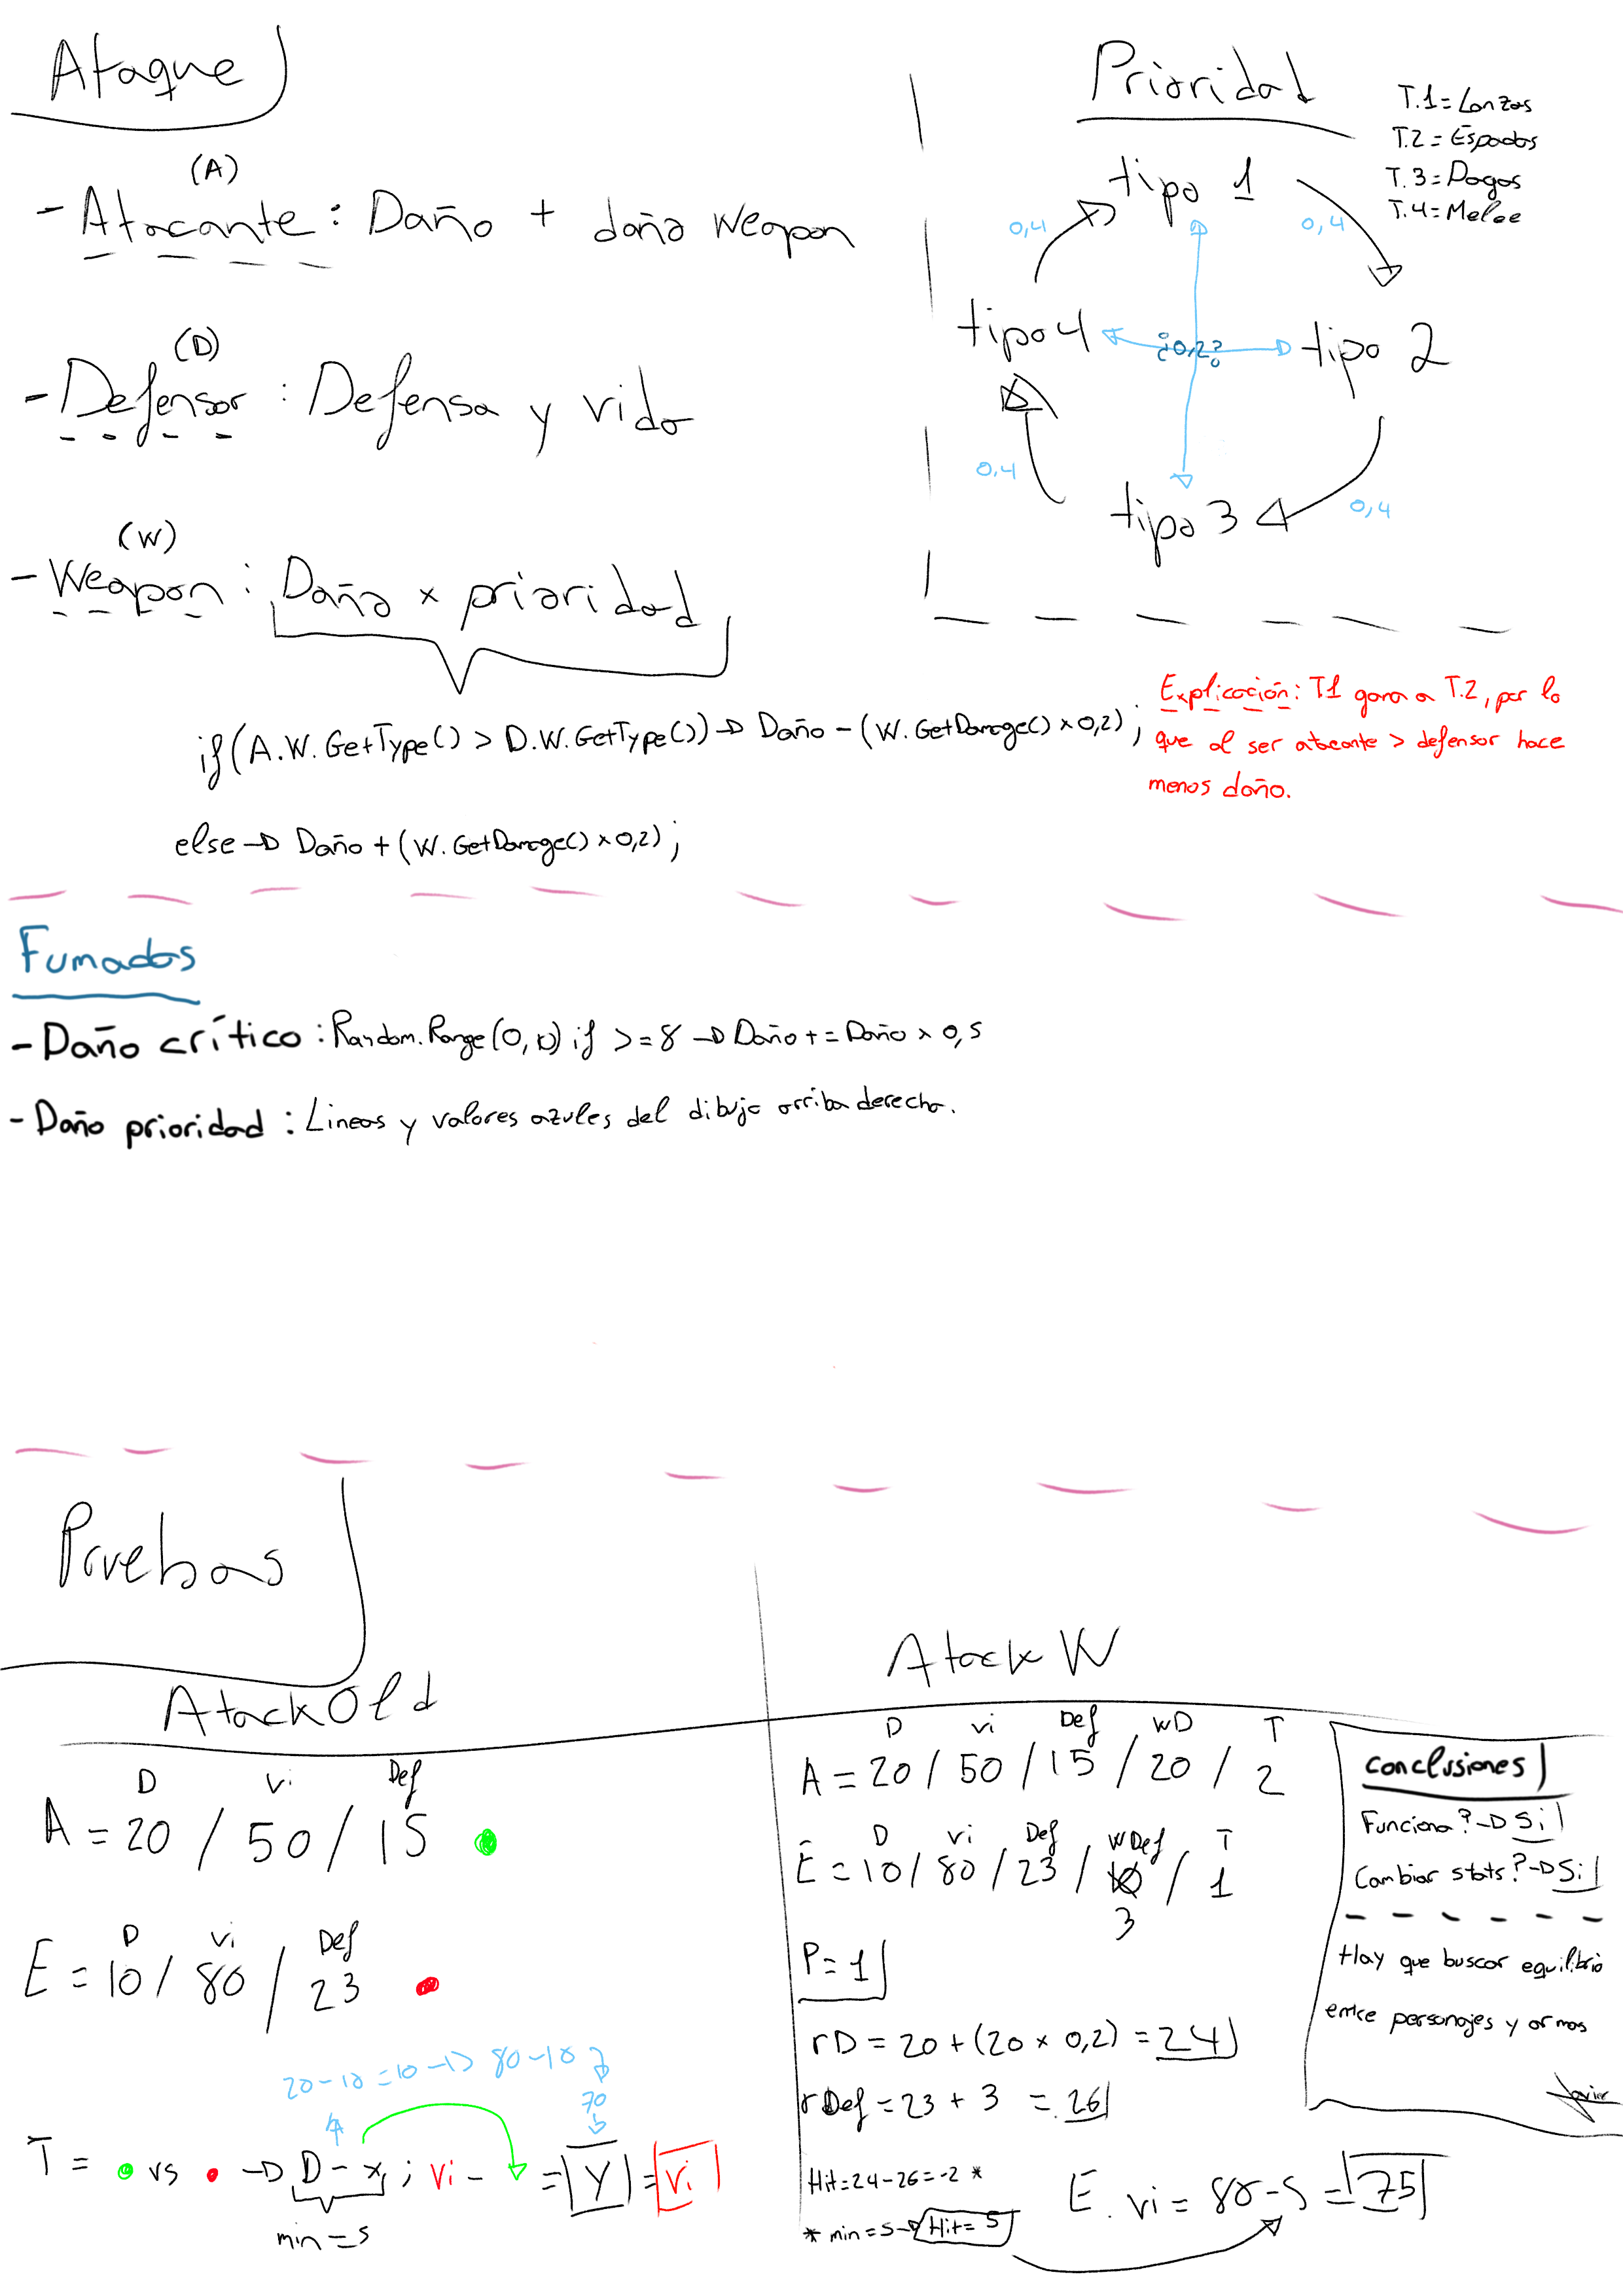 Ataque
(A)
- Atacante : Daño + daño weapon
(D)
- Defensor : Defensa y vida
(W)
- Weapon : Daño x prioridad
if (A.W.GetType() > D.W.GetType()) → Daño - (W.GetDamage() x 0,2) ;
else → Daño + (W.GetDamage() x 0,2) ;
Prioridad
T.1 = Lanzas
T.2 = Espadas
T.3 = Dagas
T.4 = Melee
tipo 1
0,4
0,4
tipo 4
¿0,2?
tipo 2
0,4
0,4
tipo 3
Explicación: T1 gana a T.2, por lo
que al ser atacante > defensor hace
menos daño.
Fumadas
- Daño crítico : Random.Range(0, 10) if >= 8 → Daño += Daño x 0,5
- Daño prioridad : Lineas y valores azules del dibujo arriba derecha.
Pruebas
Atack Old
D Vi Def
A = 20 / 50 / 15
D Vi Def
E = 10 / 80 / 23
20 - 10 = 10 → 80 - 10
70
T = vs → D - x ; Vi - = Y = Vi
min = 5
Atack W
D Vi Def WD T
A = 20 / 50 / 15 / 20 / 2
D Vi Def WDef T
E = 10 / 80 / 23 / 10 / 1
3
P = 1
rD = 20 + (20 x 0,2) = 24
rDef = 23 + 3 = 26
Hit = 24 - 26 = -2 *
* min = 5 → Hit = 5
E. Vi = 80 - 5 = 75
Conclusiones
Funciona? → Si
Cambiar stats? → Si
Hay que buscar equilibrio
entre personajes y armas
Javier